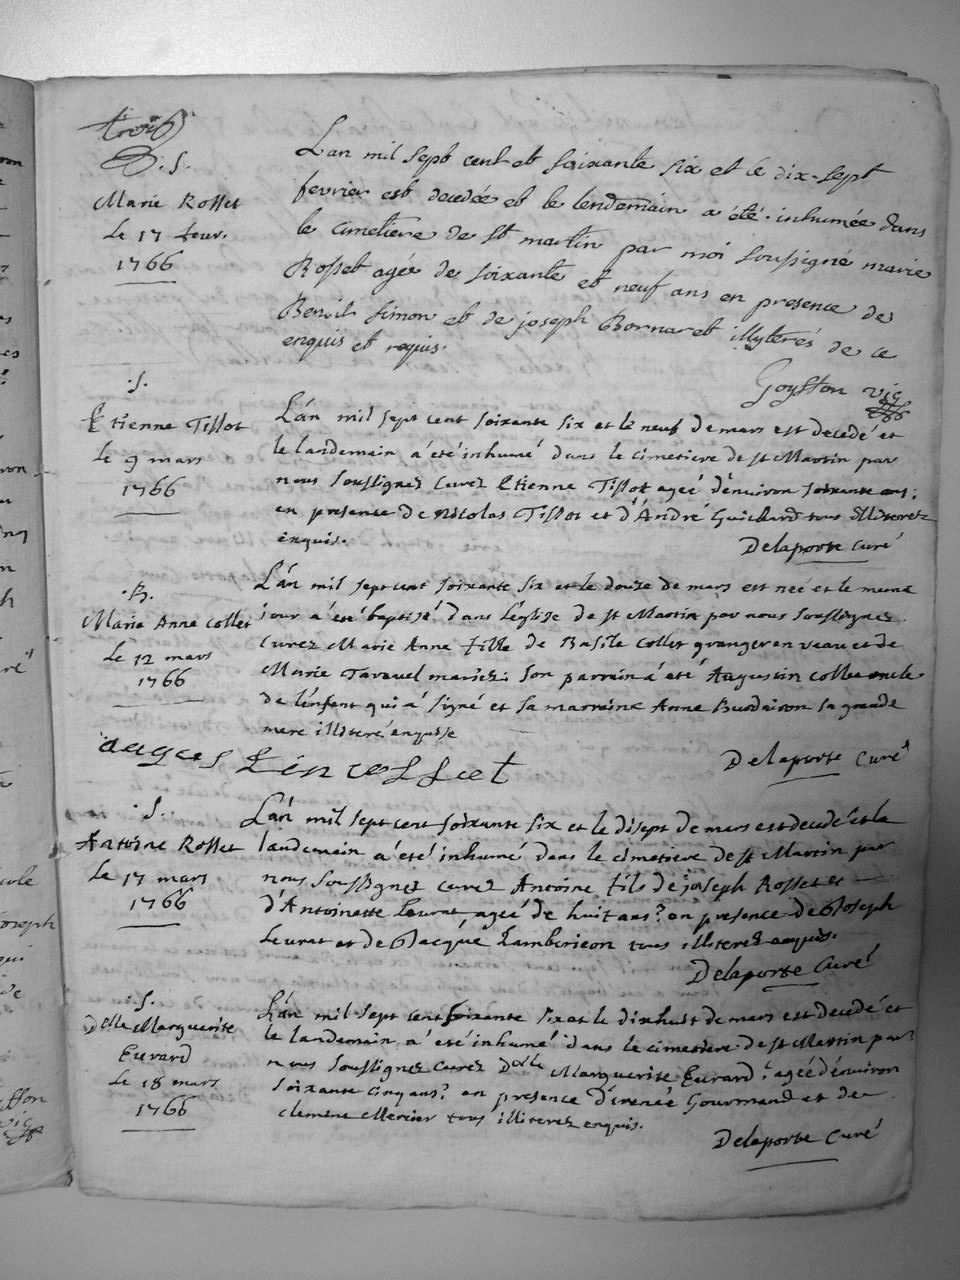 trois
S.
Marie Rosset
le 17 feur.
1766
L'an mil sept cent et soixante six et le dix-sept
fevrier est decedée et le lendemain a été inhumée dans
le cimetiere de st martin par moi soussigné marie
Rosset agée de soixante et neuf ans en presence de
Benoit simon et de joseph Bornaret illyterés de ce
enquis et requis.
Goyffon vic
S.
Etienne Tissot
le 9 mars
1766
L'án mil sept cent soixante six et le neuf de mars est decedé et
le landemain á été inhumé dans le cimetiere de st Martin par
nous soussignez curez Etienne Tissot ageé d'énuiron soixante ans;
en presence de nicolas Tissot et d'André Guichard tous illiterez
enquis.
Delaporte curé
B.
Marie Anne Collet
le 12 mars
1766
L'án mil sept cent soixante six et le douze de mars est neé et le meme
jour á été baptisé dans l'église de st Martin par nous soussignez
curez Marie Anne fille de Basile Collet granger en veau et de
Marie Tarauel mariez. son parrain á été Augustin collet oncle
de l'enfent qui á signé et sa marraine Anne Burdairon sa grande
mere illiteré enquise
Delaporte Curé
S.
Antoine Rosset
le 17 mars
1766
L'án mil sept cent soixante six et le disept de mars est decedé et la
landemain á été inhumé dans le cimetiere de st Martin par
nous soussignez curez Antoine fils de joseph Rosset et
d'Antoinette Leurat, ageé de huit ans? en presence de Joseph
Leurat et de Jacque Lambericon tous illiterez enquis.
Delaporte Curé
S.
Delle Marguerite
Eurard
le 18 mars
1766
L'án mil sept cent soixante six et le dixhuit de mars est decedé et
le landemain á été inhumé dans le cimetiere de st Martin par
nous soussignez curez Delle Marguerite Eurard? ageé d'énuiron
soixante cinq ans? en presence d'irenée Gourmand et de
clemens Mercier tous illiterez enquis.
Delaporte Curé